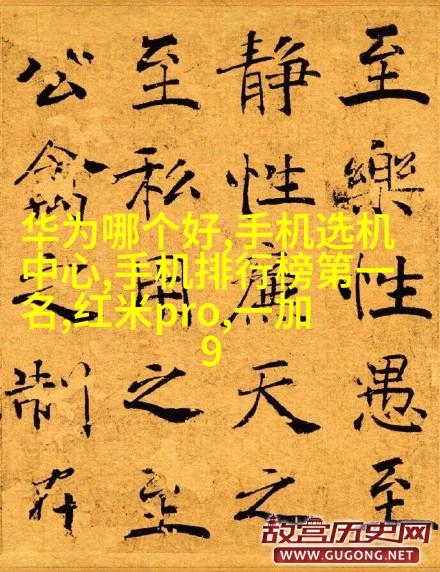 至樂性愚至
静性廉天之
至私用之至
公禽之制在
华为哪个好,手机选机
中心,手机排行榜第一
名,红米pro,一加
9
故宫历史网
WWW.GUGONG.NET